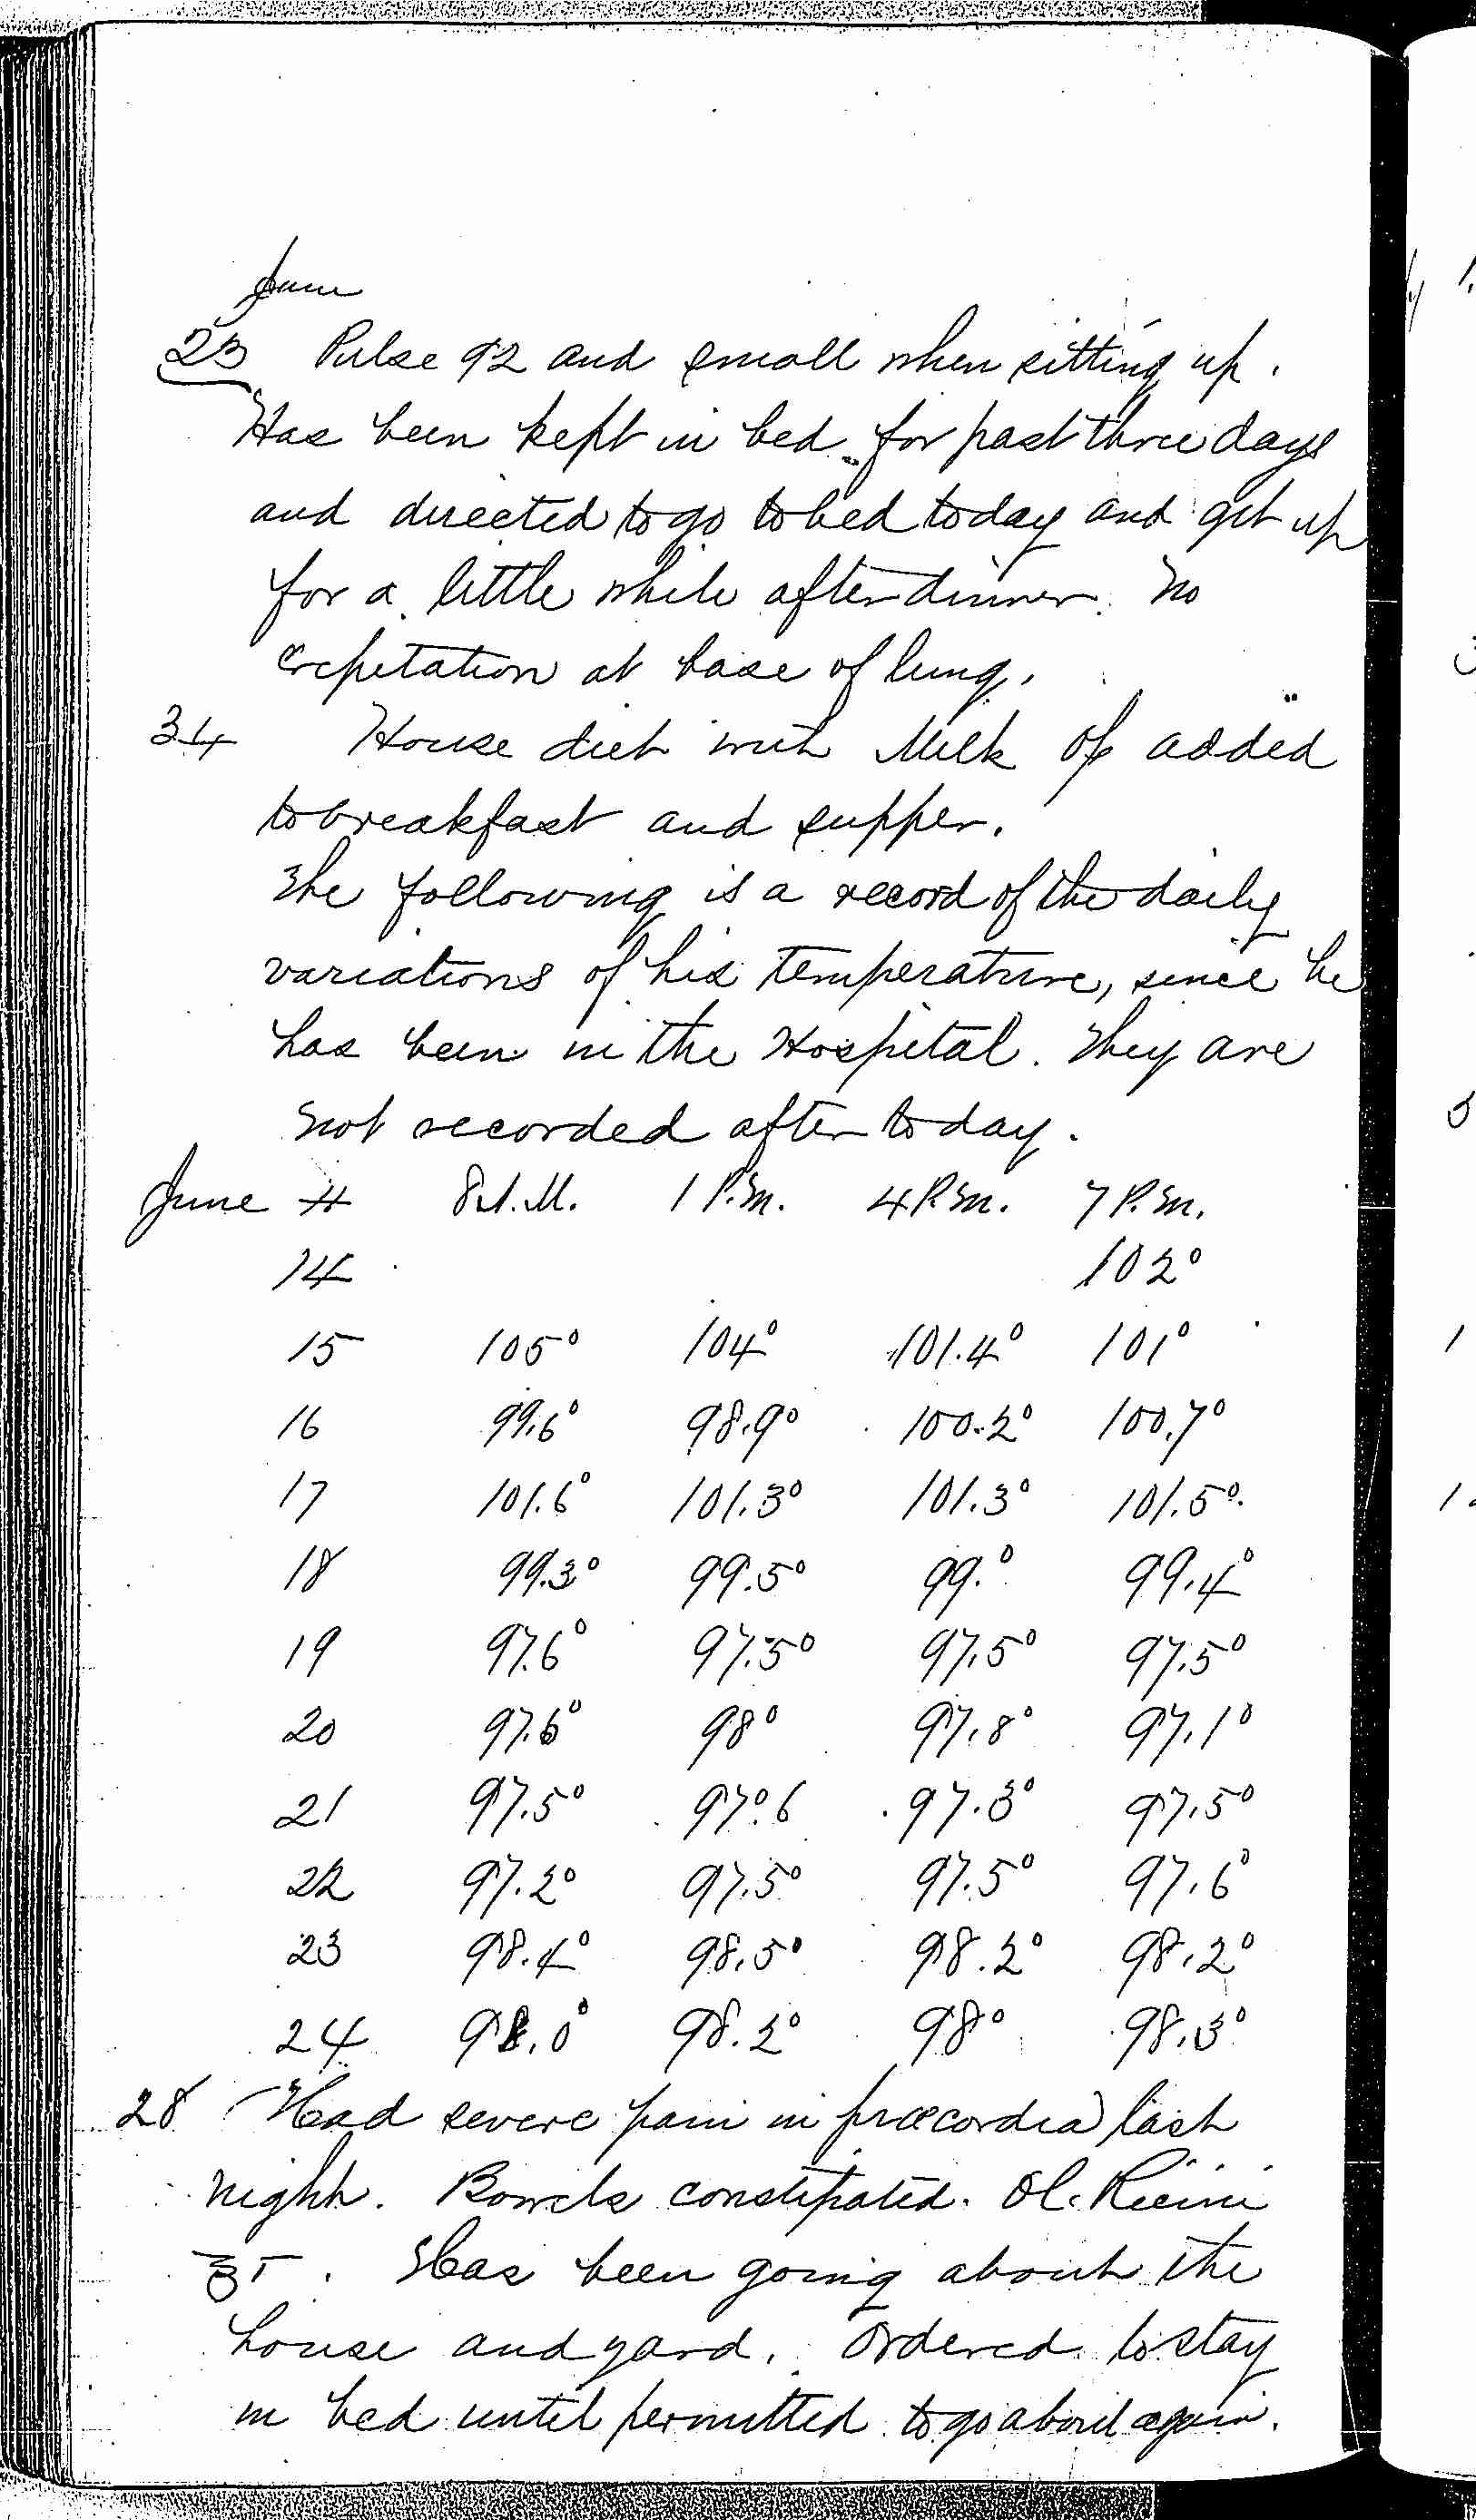 June
23 Pulse 92 and small when sitting up.
Has been kept in bed for past three days
and directed to go to bed today and get up
for a little while after dinner. No
crepitation at base of lung.
34 House diet with Milk Oj added
to breakfast and supper.
The following is a record of the daily
variations of his temperature, since he
has been in the Hospital. They are
not recorded after today.
June # 8 A.M. 1 P.M. 4 P.M. 7 P.M.
14 102°
15 105° 104° 101.4° 101°
16 99.6° 98.9° 100.2° 100.7°
17 101.6° 101.3° 101.3° 101.5°
18 99.3° 99.5° 99.° 99.4°
19 97.6° 97.5° 97.5° 97.5°
20 97.6° 98° 97.8° 97.1°
21 97.5° 97.°6 97.3° 97.5°
22 97.2° 97.5° 97.5° 97.6°
23 98.4° 98.5° 98.2° 98.2°
24 98.0° 98.2° 98° 98.3°
28 Had severe pain in præcordia last
night. Bowels constipated. Ol. Ricini
℥ī. Has been going about the
house and yard. Ordered to stay
in bed until permitted to go about again.